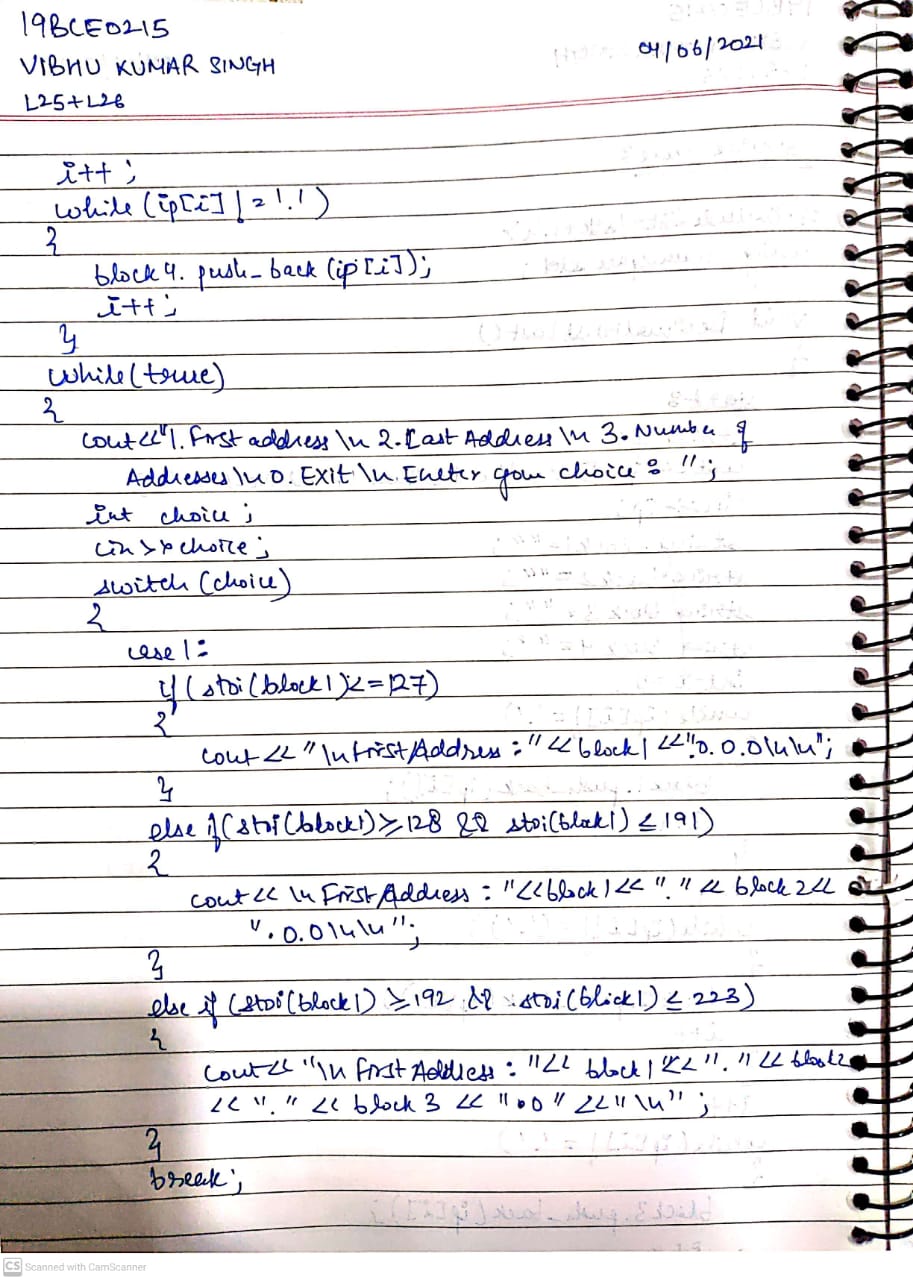 19BCE0215
04/06/2021
VIBHU KUMAR SINGH
L25+L26
i++;
while (ip[i] != '.')
{
block4. push_back (ip[i]);
i++;
}
while(true)
{
cout<<"1. First address \n 2. Last Address \n 3. Number of
Addresses \n 0. Exit \n. Eneter your choice : ";
int choice;
cin>>choice;
switch (choice)
{
case 1:
if (stoi(block1)<=127)
{
cout << "\n First Address :" << block1 <<"0.0.0\n\n";
}
else if (stoi(block1) ≥ 128 && stoi(block1) ≤ 191)
{
cout << \n First Address : "<<block1<< "." << block2<<
".0.0\n\n";
}
else if (stoi(block1) ≥ 192 && stoi(block1) ≤ 223)
{
cout<< "\n First Address : "<< block1<<"." << block2
<< "." << block3 << ".0" <<"\n" ;
}
break;
CS Scanned with CamScanner